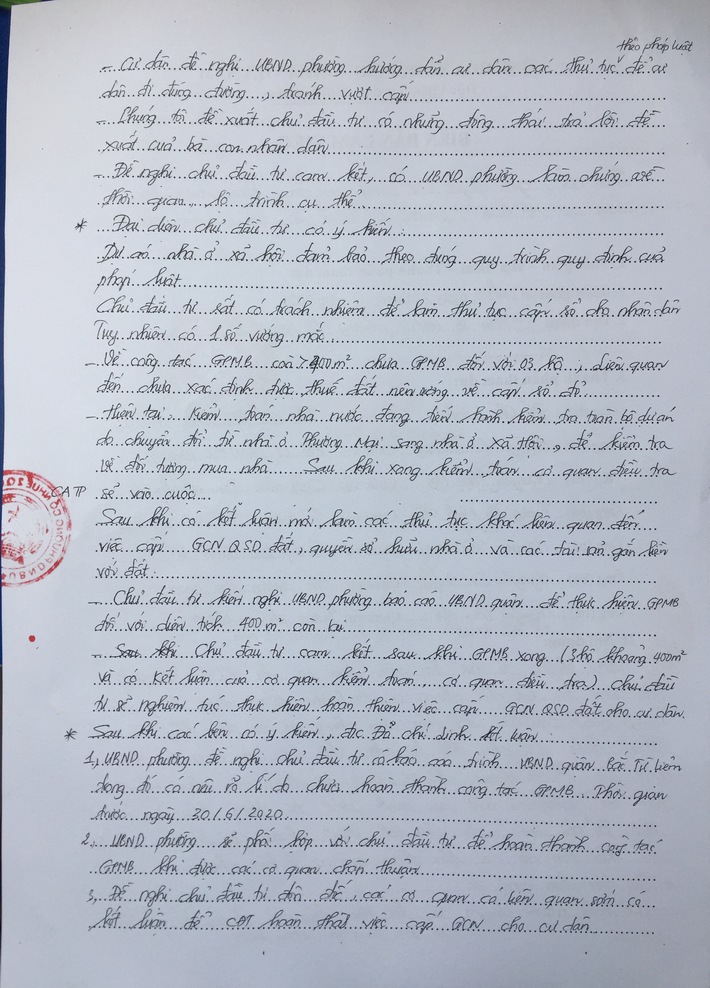 theo pháp luật
- Cư dân đề nghị UBND phường hướng dẫn cư dân các thủ tục ˅ để cư
dân đi đúng đường, tránh vượt cấp
- Chúng tôi đề xuất chủ đầu tư có những động thái trả lời đề
xuất của bà con nhân dân
- Đề nghị chủ đầu tư cam kết, có UBND phường làm chứng về
thời gian, lộ trình cụ thể
* Đại diện chủ đầu tư có ý kiến:
Dự án nhà ở xã hội đảm bảo theo đúng quy trình quy định của
pháp luật
Chủ đầu tư rất có trách nhiệm để làm thủ tục cấp sổ cho nhân dân
Tuy nhiên có 1 số vướng mắc
- Về công tác GPMB còn >400m² chưa GPMB đối với 03 hộ, liên quan
đến chưa xác định được thuế đất nên vướng về cấp sổ đỏ
- Hiện tại: Kiểm toán nhà nước đang tiến hành kiểm tra toàn bộ dự án
do chuyển đổi từ nhà ở Thương Mại sang nhà ở Xã Hội, để kiểm tra
về đối tượng mua nhà. Sau khi xong kiểm toán cơ quan điều tra
CATP sẽ vào cuộc
Sau khi có kết luận mới làm các thủ tục khác liên quan đến
việc cấp GCN QSD đất, quyền sở hữu nhà ở và các tài sản gắn liền
với đất
- Chủ đầu tư kiến nghị UBND phường báo cáo UBND quận để thực hiện GPMB
đối với diện tích 400m² còn lại
- Sau khi Chủ đầu tư cam kết sau khi GPMB xong (3 hộ khoảng 400m²
và có kết luận của cơ quan kiểm toán, cơ quan điều tra) chủ đầu
tư sẽ nghiêm túc thực hiện hoàn thiện việc cấp GCN QSD đất cho cư dân.
* Sau khi các bên có ý kiến, đ/c Đỗ Chí Linh kết luận
1, UBND phường đề nghị chủ đầu tư có báo cáo trình UBND quận Bắc Từ Liêm
trong đó có nêu rõ lí do chưa hoàn thành công tác GPMB. Thời gian
trước ngày 30/6/2020
2, UBND phường sẽ phối hợp với chủ đầu tư để hoàn thành công tác
GPMB khi được các cơ quan chấp thuận
3, Đề nghị chủ đầu tư đôn đốc, các cơ quan có liên quan sớm có
kết luận để CĐT hoàn tất việc cấp GCN cho cư dân